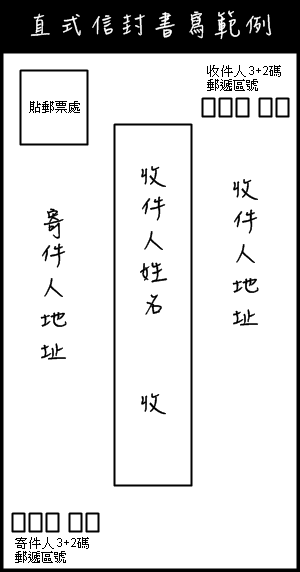 直式信封書寫範例
貼郵票處
收件人3+2碼
郵遞區號
收件人地址
收件人姓名 收
寄件人地址
寄件人3+2碼
郵遞區號